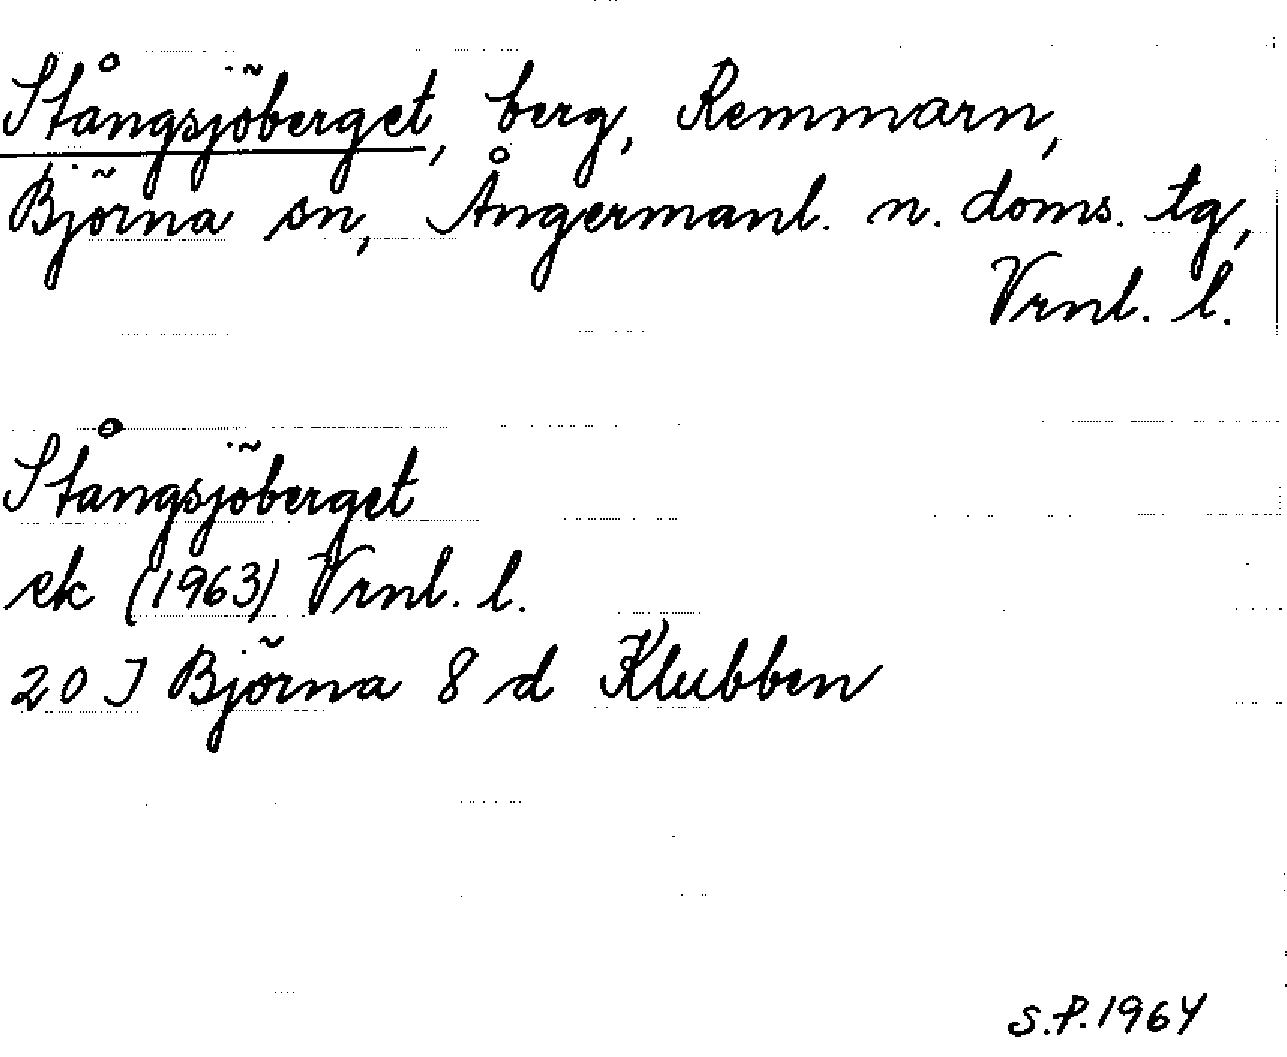 Stångsjöberget, berg, Remmarn,
Björna sn, Ångermanl. n. doms. tg,
Vrnl. l.
Stångsjöberget
ek (1963) Vrnl. l.
20 J Björna 8 d Klubben
S.P. 1964